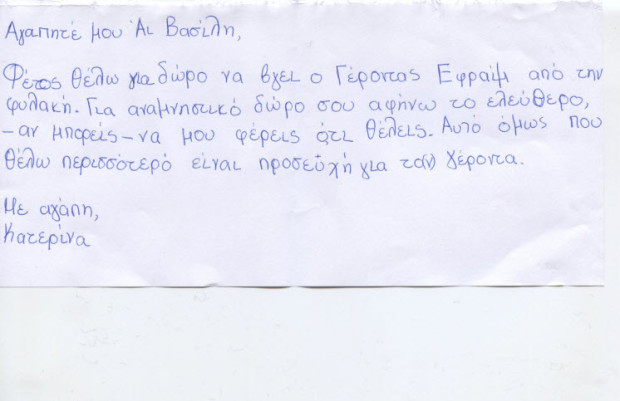 Αγαπητέ μου Άι Βασίλη,
Φέτος θέλω για δώρο να βγει ο Γέροντας Εφραίμ από την
φυλακή. Για αναμνηστικό δώρο σου αφήνω το ελεύθερο,
-αν μπορείς- να μου φέρεις ότι θέλεις. Αυτό όμως που
θέλω περισσότερό είναι προσευχή για το(ν) γέροντα.
Με αγάπη,
Κατερίνα